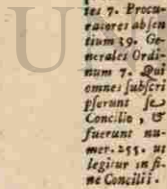 tes 7. Procu-
ratores absen
tium 39. Ge-
nerales Ordi-
num 7. Qui
omnes subscri
pserunt se
Concilio , &
fuerunt nu-
mer. 255. ut
legitur in fi
ne Concilii.
U